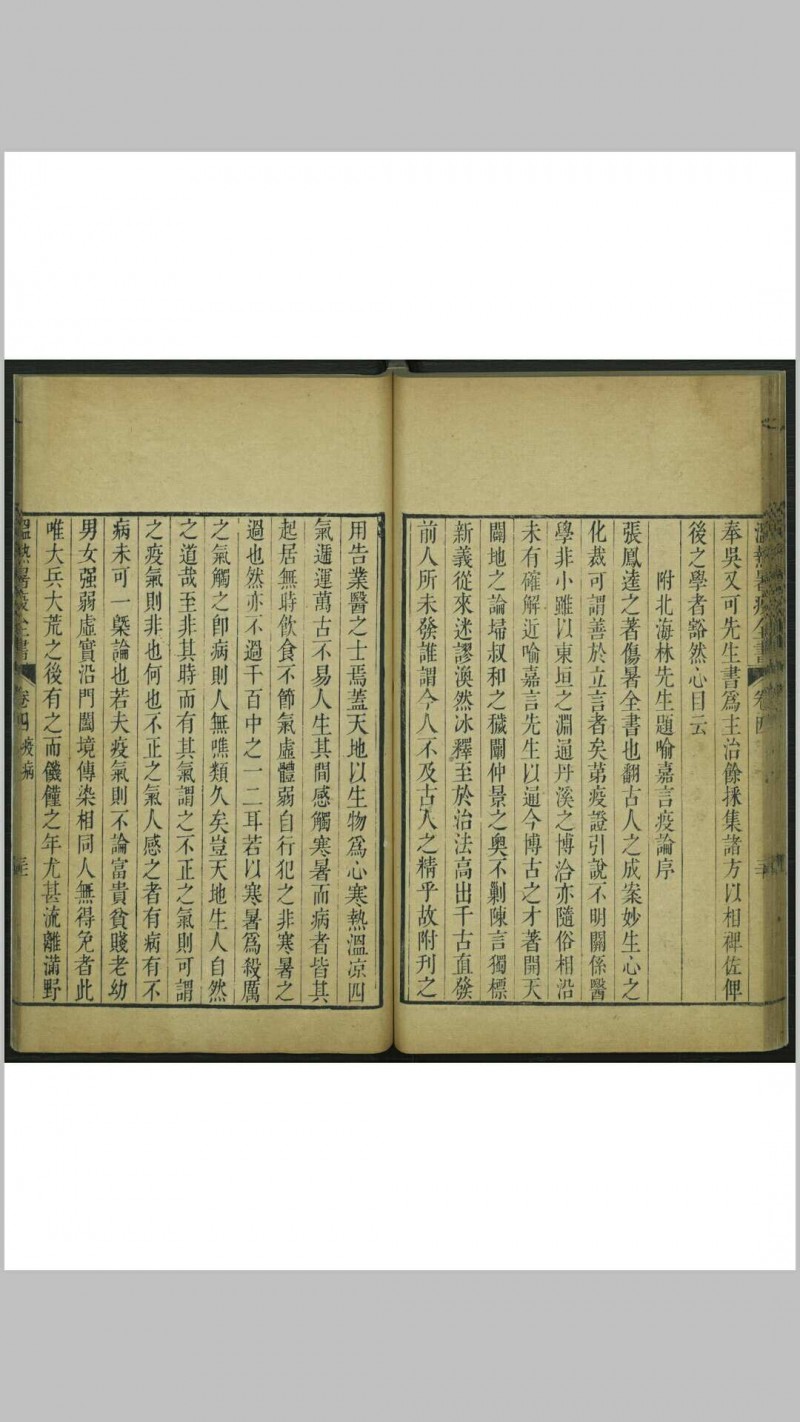 奉吳又可先生書爲主治條採集諸方以相裨佐俾
後之學者豁然心目云
附北海林先生題喻嘉言疫論序
張鳳逵之著傷暑全書也翻古人之成案妙生心之
化裁可謂善於立言者矣第疫證引說不明關係醫
學非小雖以東垣之淵通丹溪之博洽亦隨俗相沿
未有確解近喻嘉言先生以通今博古之才著開天
闢地之論埽叔和之穢闢仲景之奧不剿陳言獨標
新義從來迷謬渙然冰釋至於治法高出千古直發
前人所未發誰謂今人不及古人之精乎故附刊之
用告業醫之士焉蓋天地以生物爲心寒熱溫凉四
氣遞運萬古不易人生其間感觸寒暑而病者皆其
起居無時飲食不節氣虛體弱自行犯之非寒暑之
過也然亦不過千百中之一二耳若以寒暑爲殺厲
之氣觸之卽病則人無噍類久矣豈天地生人自然
之道哉至非其時而有其氣謂之不正之氣則可謂
之疫氣則非也何也不正之氣人感之者有病有不
病未可一槩論也若夫疫氣則不論富貴貧賤老幼
男女强弱虛實沿門闔境傳染相同人無得免者此
唯大兵大荒之後有之而饑饉之年尤甚流離滿野
溫熱暑疫全書 卷四疫病 三